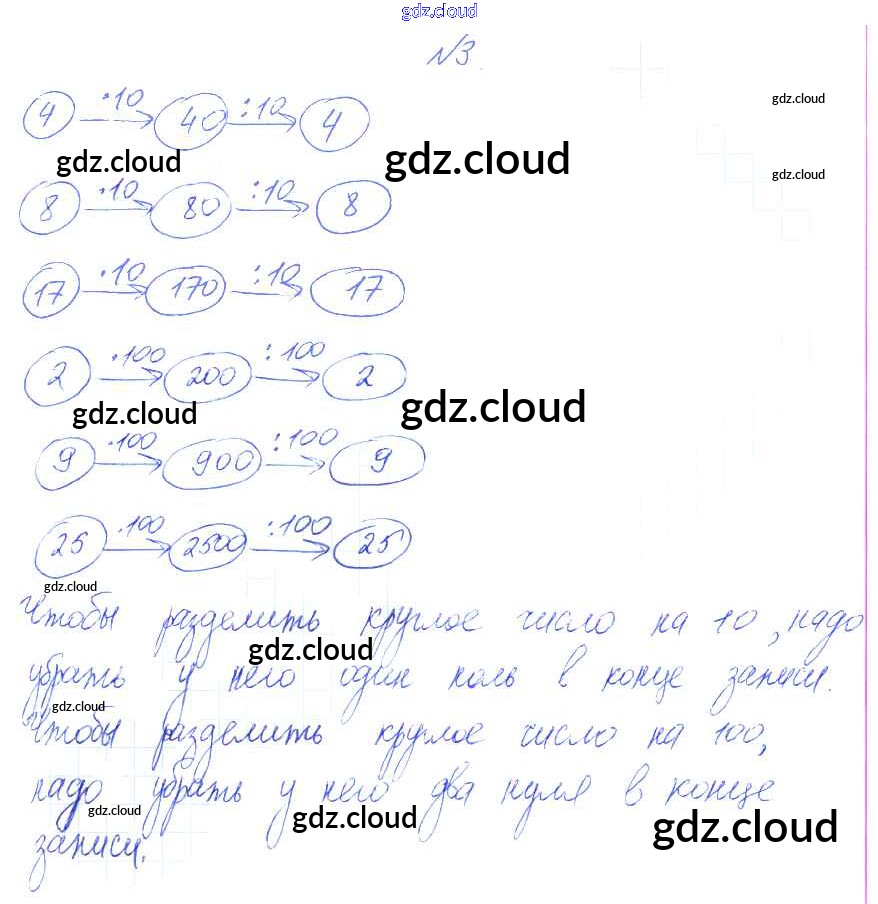 gdz.cloud
№3
4 ·10 40 :10 4
gdz.cloud
gdz.cloud gdz.cloud
gdz.cloud
8 ·10 80 :10 8
17 ·10 170 :10 17
2 ·100 200 :100 2
gdz.cloud gdz.cloud
9 ·100 900 :100 9
25 ·100 2500 :100 25
gdz.cloud
Чтобы разделить круглое число на 10, надо
gdz.cloud
убрать у него один ноль в конце записи.
gdz.cloud
Чтобы разделить круглое число на 100,
надо убрать у него два нуля в конце
gdz.cloud gdz.cloud gdz.cloud
записи.